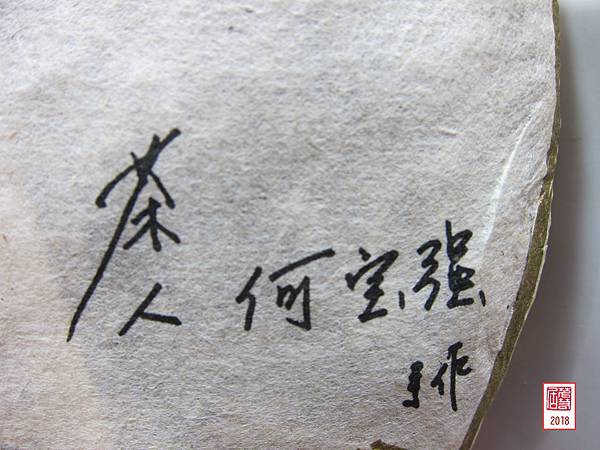 茶人
何宝强
手作
2018